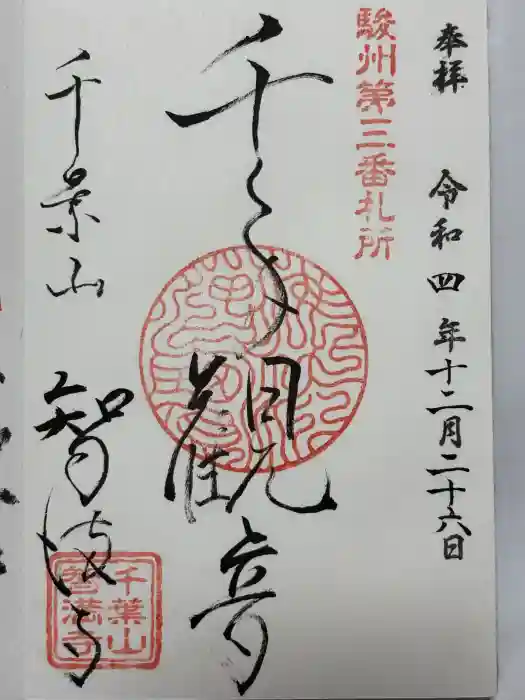 奉拝　令和四年十二月二十六日
駿州第三番札所
千手観音
千葉山　智満寺
千葉山
智満寺